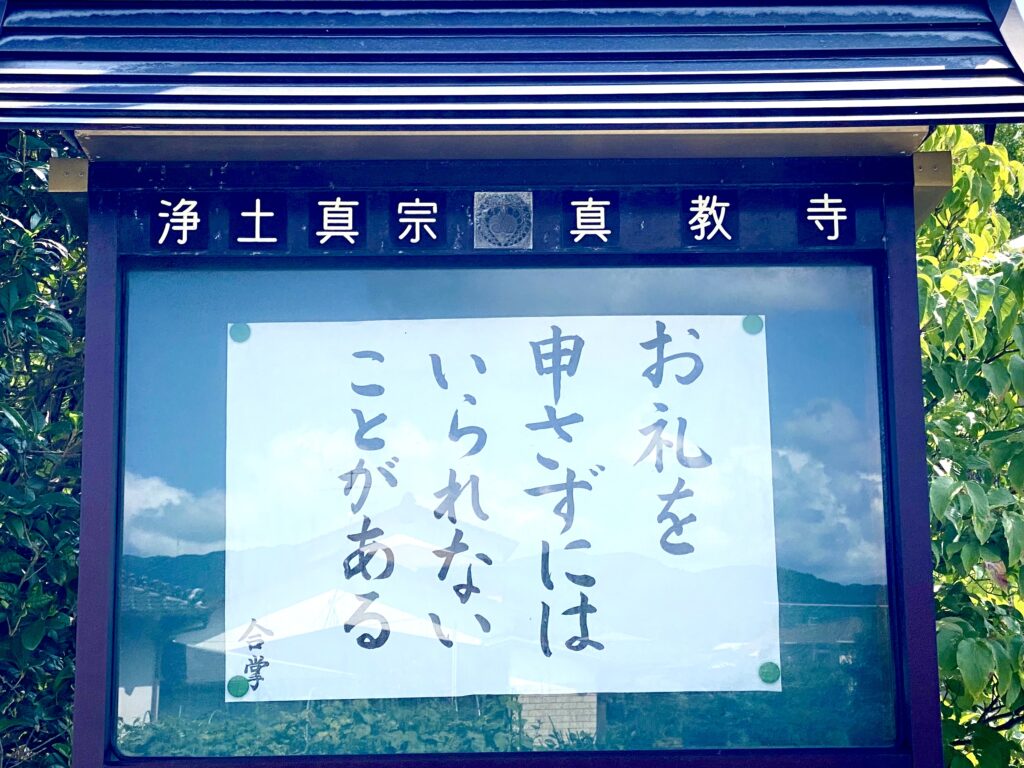 浄土真宗 真教寺
お礼を
申さずには
いられない
ことがある
合掌